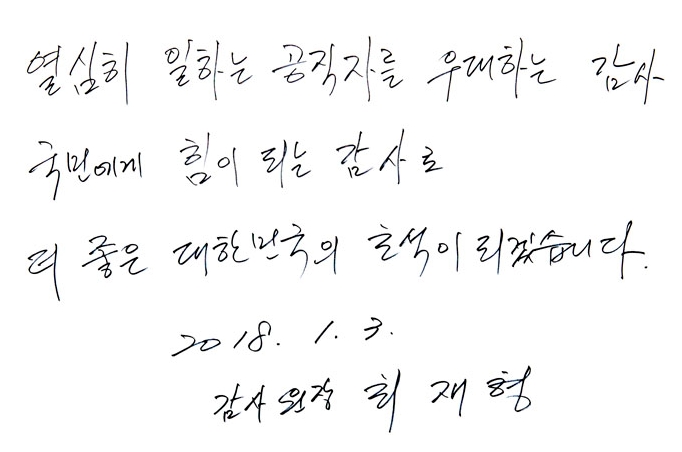 열심히 일하는 공직자를 우대하는 감사
국민에게 힘이 되는 감사로
더 좋은 대한민국의 초석이 되겠습니다.
2018. 1. 3.
감사원장 최재형